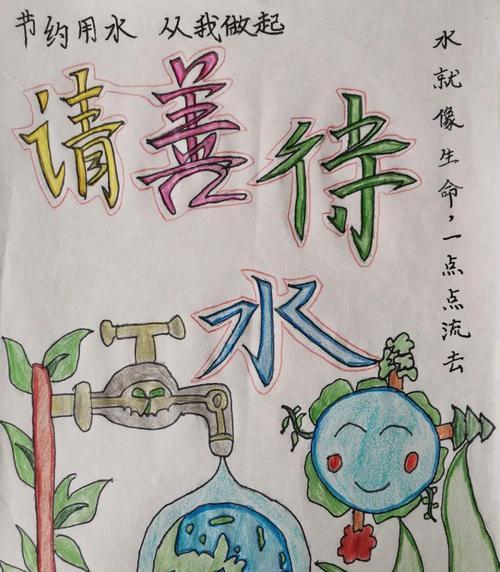 节约用水 从我做起
请善待
水
水就像生命，一点点流去